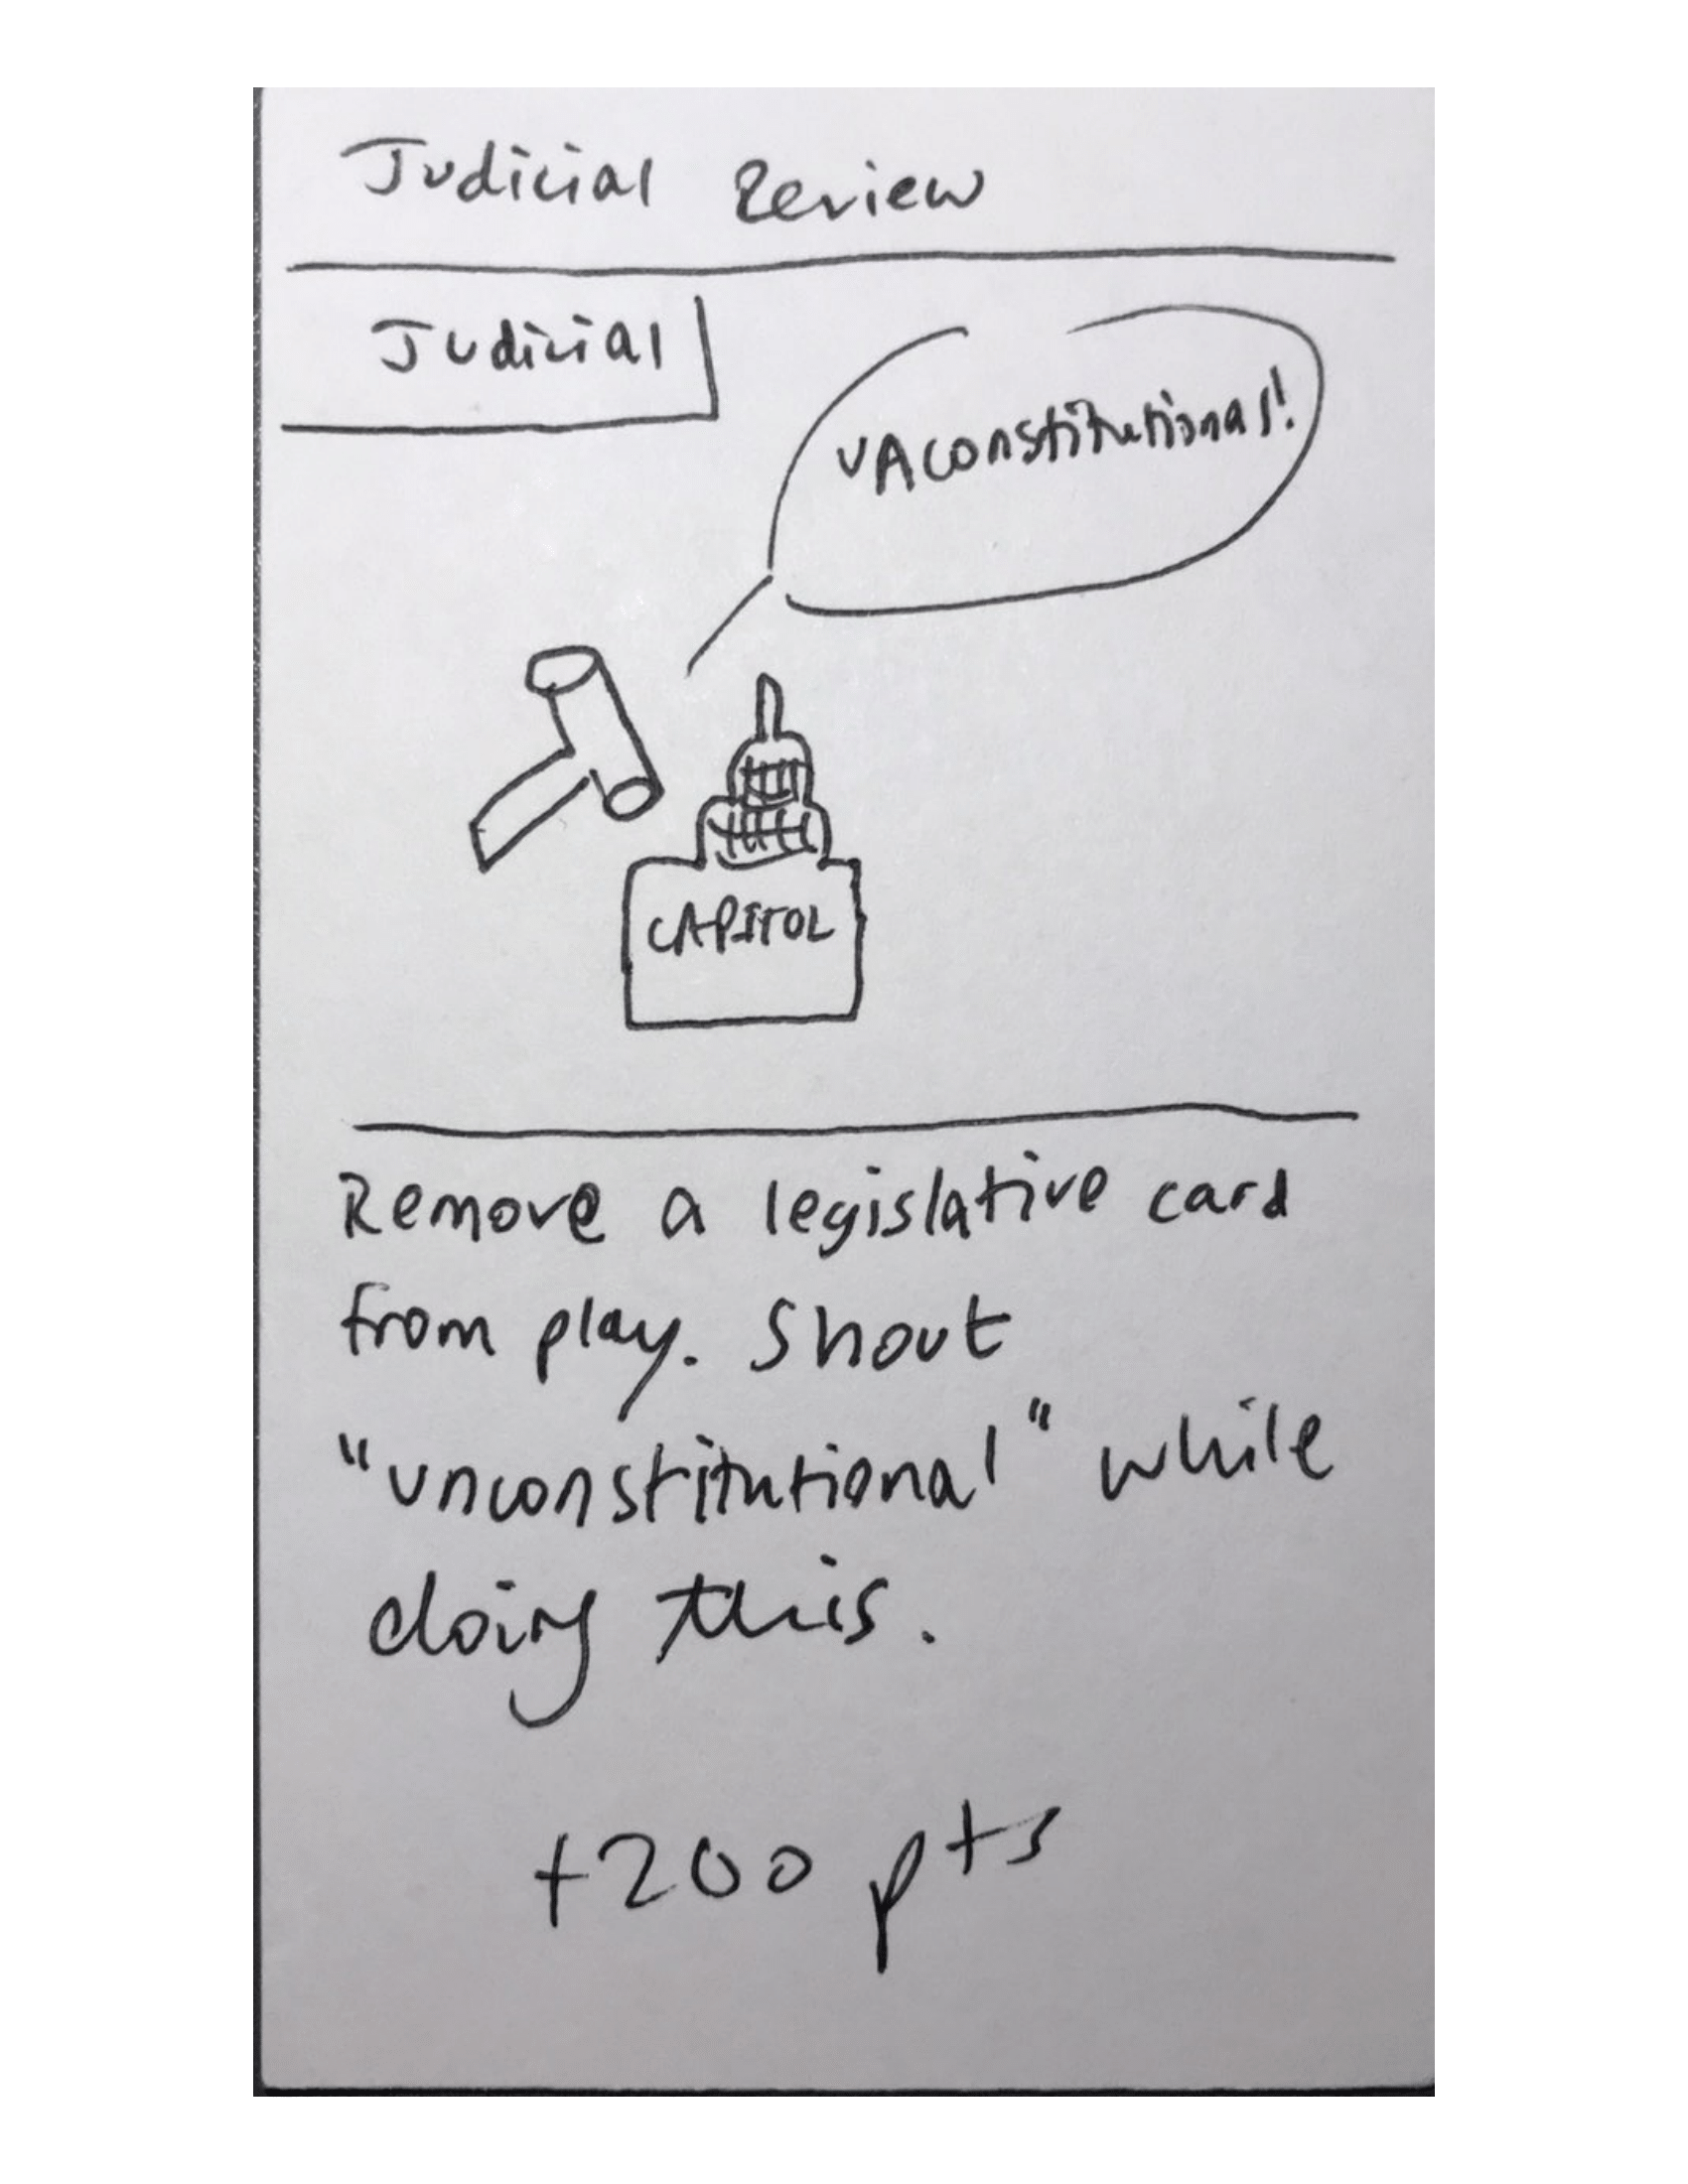 Judicial Review
Judicial
Unconstitutional!
CAPITOL
Remove a legislative card
from play. Shout
"unconstitutional" while
doing this.
+200 pts